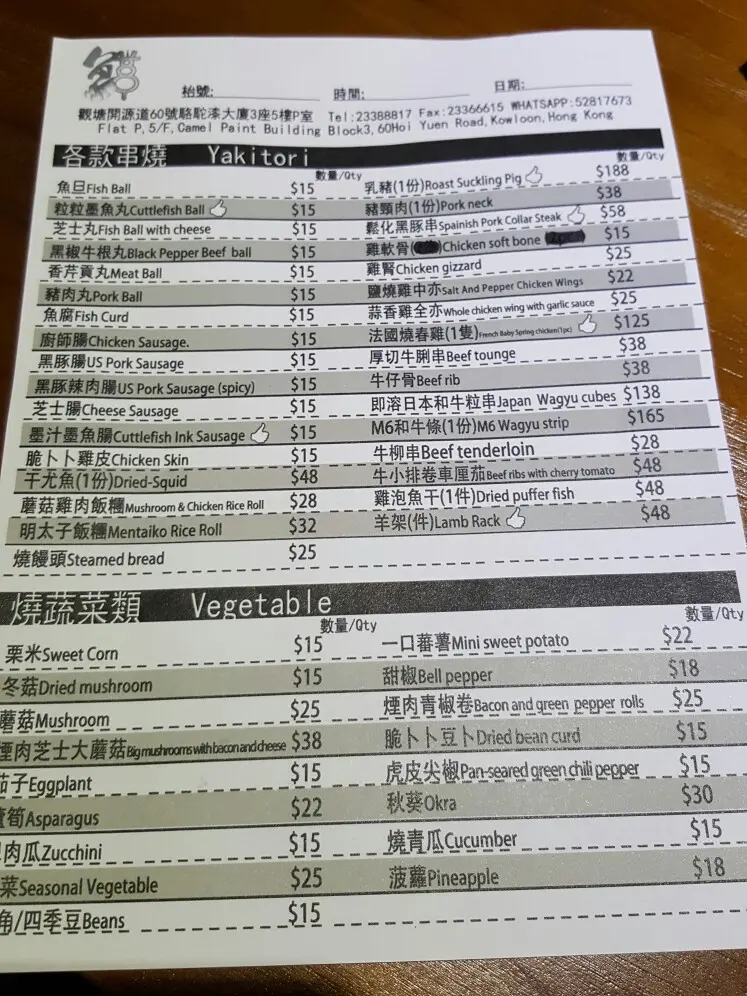 枱號: 時間: 日期:
觀塘開源道60號駱駝漆大廈3座5樓P室 Tel:23388817 Fax:23366615 WHATSAPP:52817673
Flat P,5/F,Camel Paint Building Block3,60Hoi Yuen Road,Kowloon,Hong Kong
各款串燒 Yakitori
數量/Qty 數量/Qty
魚旦Fish Ball $15 乳豬(1份)Roast Suckling Pig $188
粒粒墨魚丸Cuttlefish Ball $15 豬頸肉(1份)Pork neck $38
芝士丸Fish Ball with cheese $15 鬆化黑豚串Spainish Pork Collar Steak $58
黑椒牛根丸Black Pepper Beef ball $15 雞軟骨 Chicken soft bone $15
香芹貢丸Meat Ball $15 雞腎Chicken gizzard $25
豬肉丸Pork Ball $15 鹽燒雞中亦Salt And Pepper Chicken Wings $22
魚腐Fish Curd $15 蒜香雞全亦Whole chicken wing with garlic sauce $25
廚師腸Chicken Sausage. $15 法國燒春雞(1隻)French Baby Spring chicken(1pc) $125
黑豚腸US Pork Sausage $15 厚切牛脷串Beef tounge $38
黑豚辣肉腸US Pork Sausage (spicy) $15 牛仔骨Beef rib $38
芝士腸Cheese Sausage $15 即溶日本和牛粒串Japan Wagyu cubes $138
墨汁墨魚腸Cuttlefish Ink Sausage $15 M6和牛條(1份)M6 Wagyu strip $165
脆卜卜雞皮Chicken Skin $15 牛柳串Beef tenderloin $28
干尤魚(1份)Dried-Squid $48 牛小排卷車厘茄Beef ribs with cherry tomato $48
蘑菇雞肉飯糰Mushroom & Chicken Rice Roll $28 雞泡魚干(1件)Dried puffer fish $48
明太子飯糰Mentaiko Rice Roll $32 羊架(件)Lamb Rack $48
燒饅頭Steamed bread $25
燒蔬菜類 Vegetable
數量/Qty 數量/Qty
栗米Sweet Corn $15 一口蕃薯Mini sweet potato $22
冬菇Dried mushroom $15 甜椒Bell pepper $18
蘑菇Mushroom $25 煙肉青椒卷Bacon and green pepper rolls $25
煙肉芝士大蘑菇Big mushrooms with bacon and cheese $38 脆卜卜豆卜Dried bean curd $15
茄子Eggplant $15 虎皮尖椒Pan-seared green chili pepper $15
筍Asparagus $22 秋葵Okra $30
肉瓜Zucchini $15 燒青瓜Cucumber $15
菜Seasonal Vegetable $25 菠蘿Pineapple $18
角/四季豆Beans $15